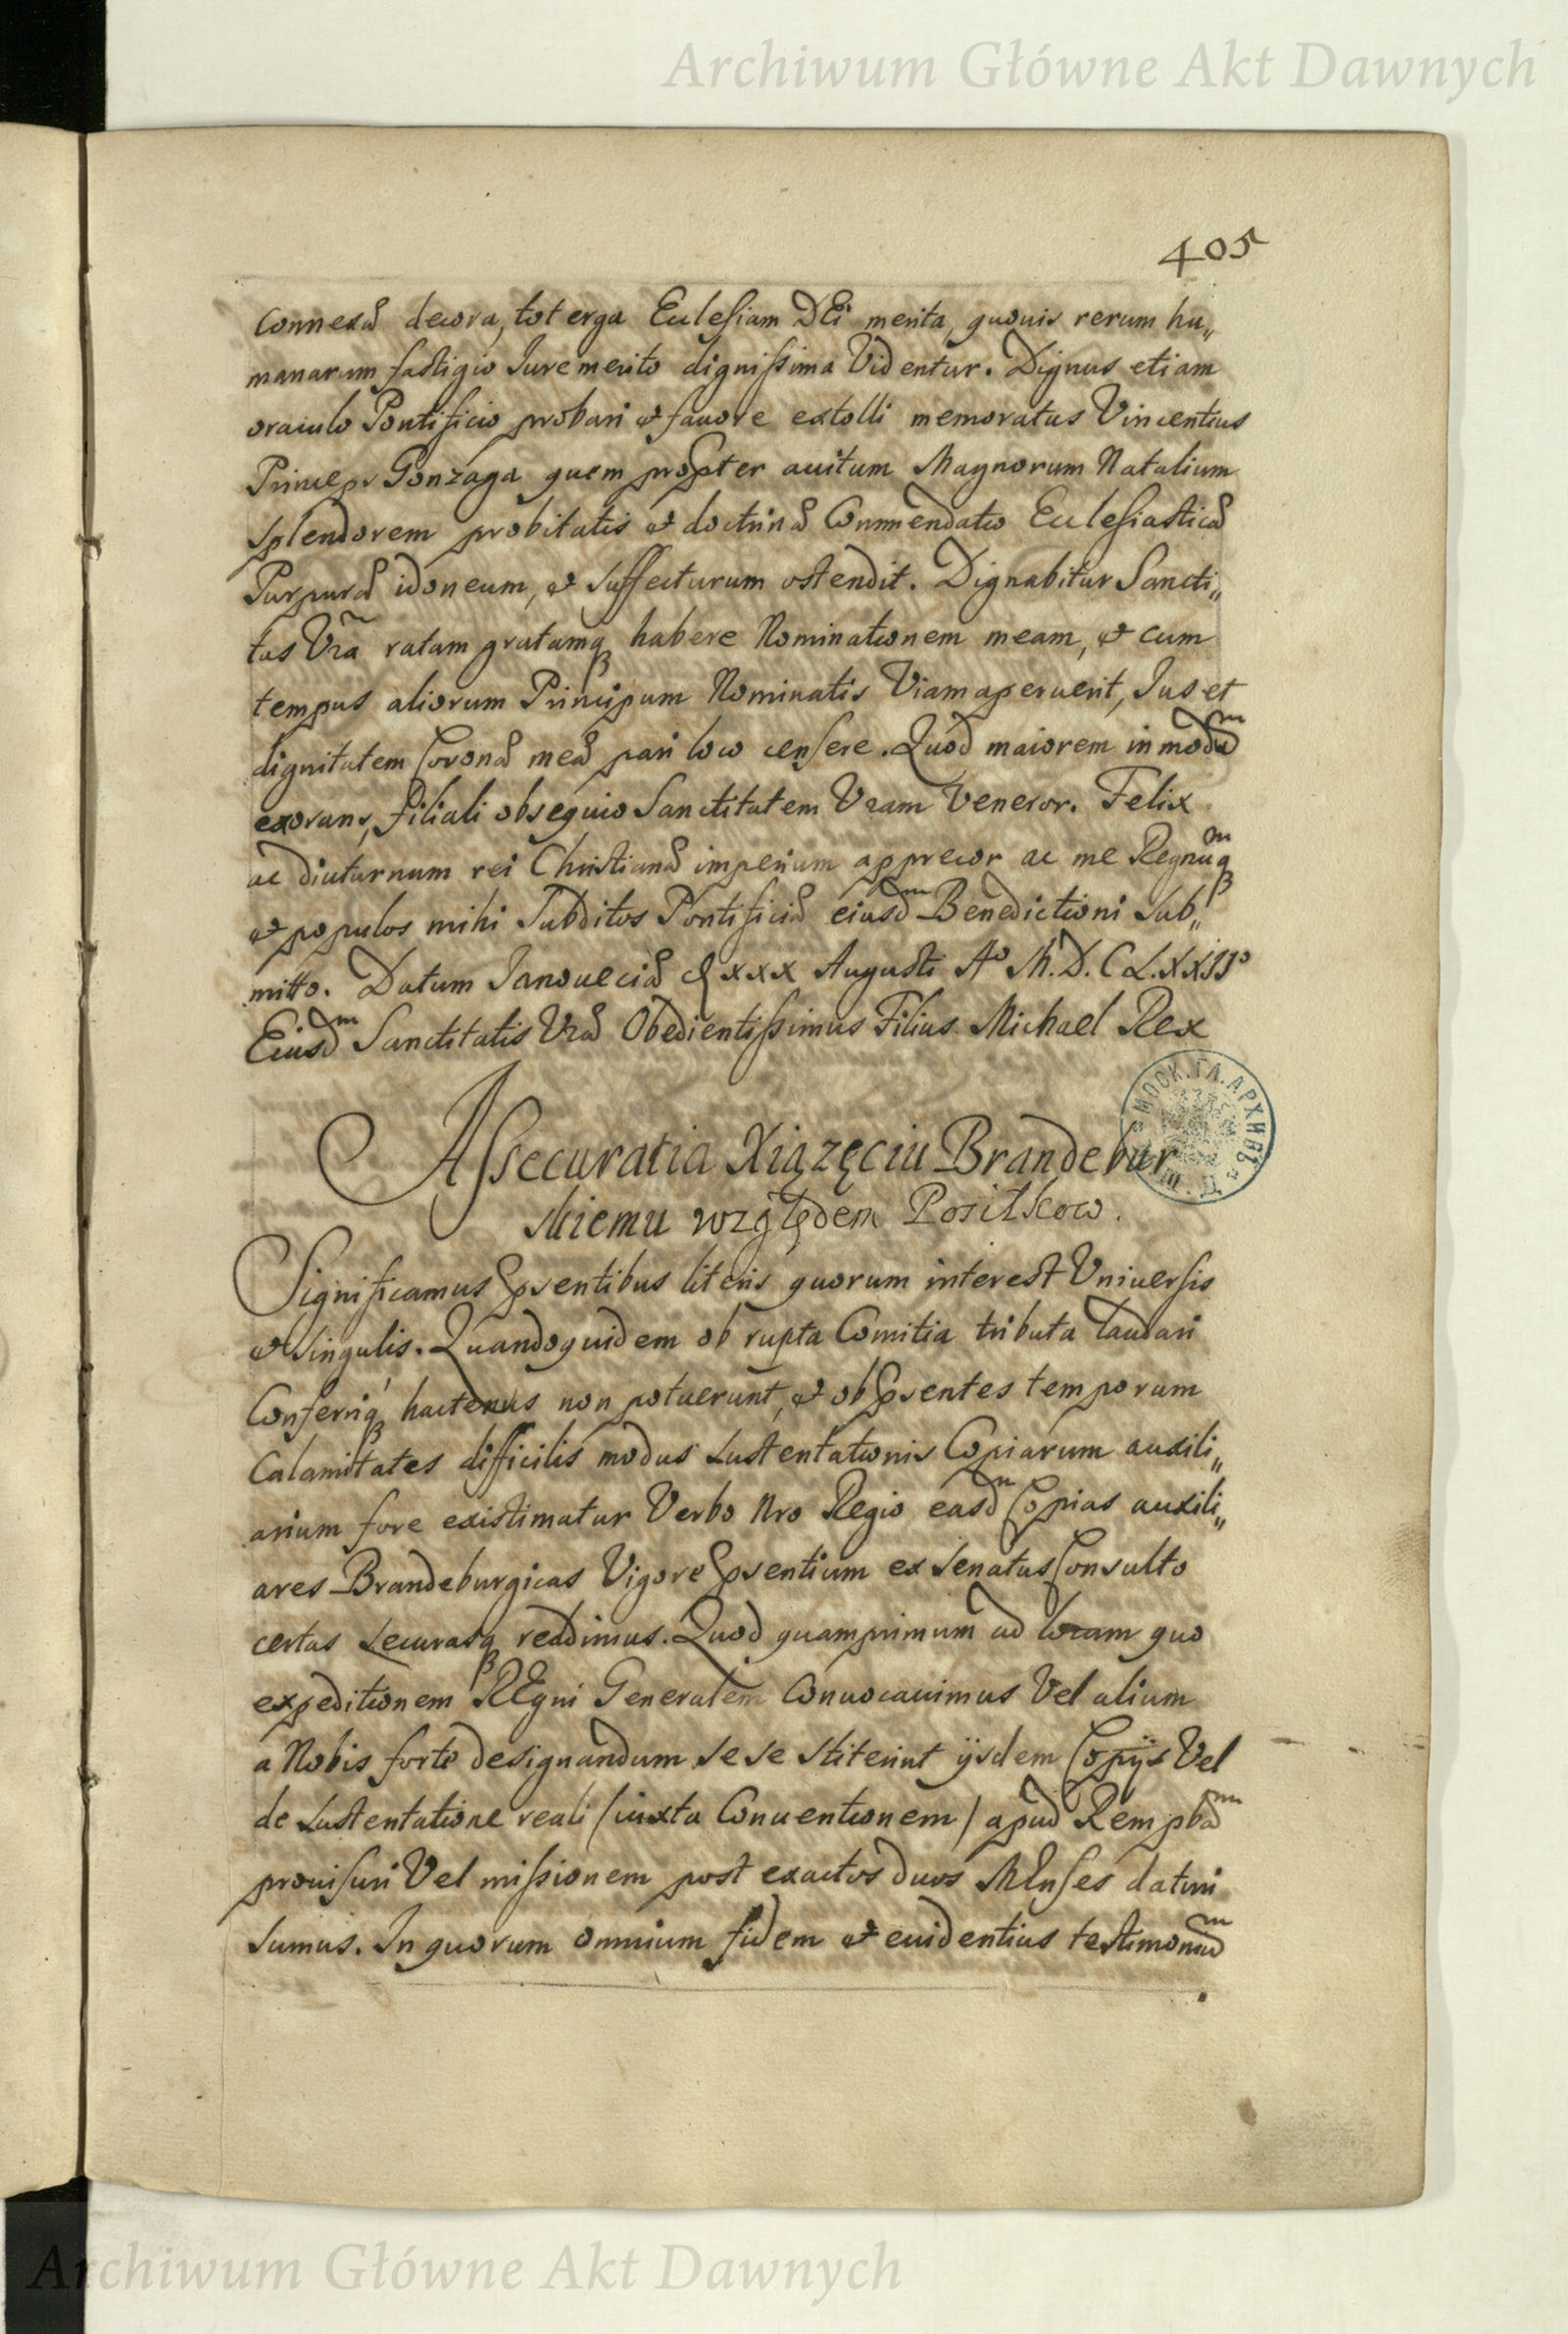 Archiwum Główne Akt Dawnych
405
Connexæ decora, tot erga Ecclesiam DEi merita, quouis rerum hu„
manarum fastigio Iure merito dignissima Videntur. Dignus etiam
oraculo Pontificio probari & fauore extolli memoratus Vincentius
Princeps Gonzaga quem propter auitum Magnorum Natalium
splendorem probitatis & doctrinæ Commendatio Ecclesiasticæ
Purpuræ idoneum, & suffecturum ostendit. Dignabitur Sancti„
tas Vrã ratam gratamq habere Nominationem meam, & cum
tempus aliorum Principum Nominatis Viam aperuerit, Ius et
dignitatem Coronæ meæ pari loco censere. Quod maiorem in modũ
exorans, filiali obsequio Sanctitatem Vram Veneror. Felix
ac diuturnum rei Christianæ imperium apprecor ac me Regnũq
& populos mihi Subditos Pontificiæ eiusdm Benedictioni Sub„
mitto. Datum Janoueciæ d xxx Augusti Ao M.D.CLXXIIo
Eiusdm Sanctitatis Vræ Obedientissimus Filius Michael Rex
МОСК. ГЛ. АРХИВЪ
Assecuratia Xiązęciu Brandebur
skiemu względem Posiłkow.
Significamus pũsentibus literis quorum interest Vniuersis
& singulis. Quandoquidem ob rupta Comitia tributa laudari
Conferriq hactenus non potuerunt, & ob pũsentes temporum
Calamitates difficilis modus sustentationis Copiarum auxili„
arium fore existimatur Verbo Nro Regio easdm Copias auxili„
ares Brandeburgicas Vigore pũsentium ex Senatus Consulto
certas securasq reddimus. Quod quamprimum ad locum quo
expeditionem REgni Generalem Conuocauimus Vel alium
a Nobis forte designandum sese stiterint ijsdem Copijs Vel
de sustentatione reali (iuxta Conuentionem) apud Rempbãm
prouisuri Vel missionem post exactos duos MEnses daturi
sumus. In quorum omnium fidem & euidentius testimoniũ
Archiwum Główne Akt Dawnych